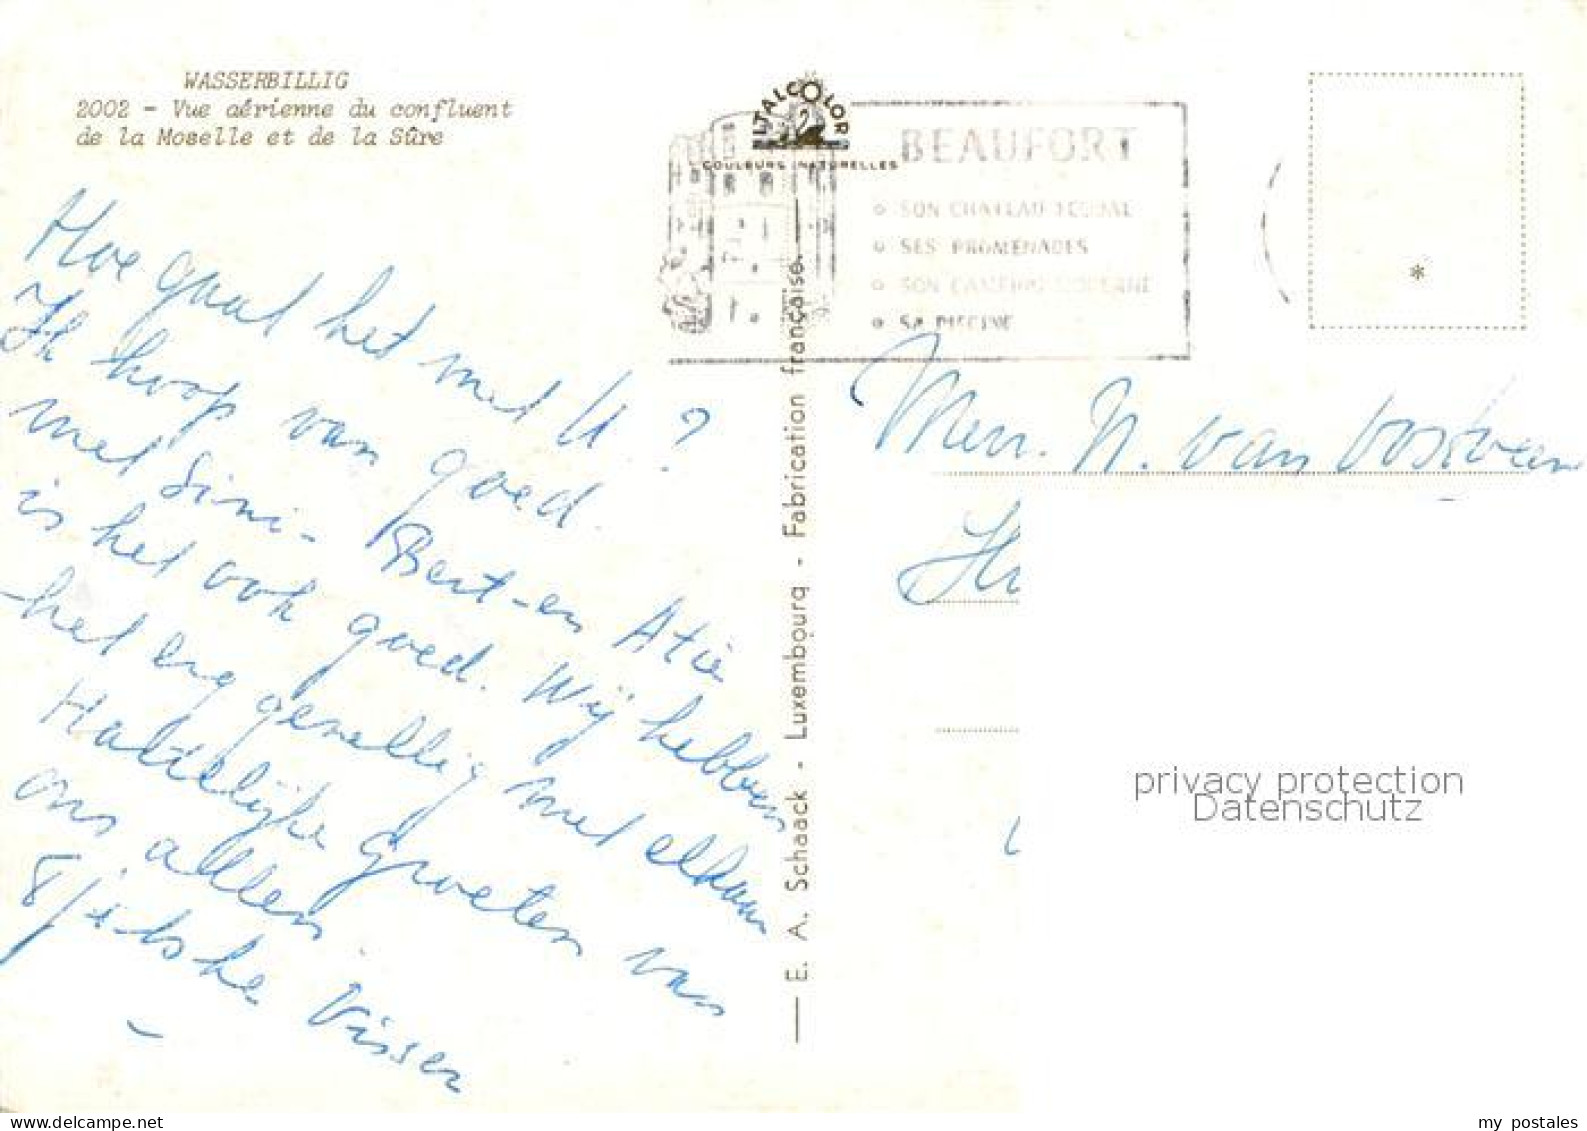 WASSERBILLIG
2002 - Vue aérienne du confluent
de la Moselle et de la Sûre
ITALCOLOR
COULEURS NATURELLES
BEAUFORT
SON CHATEAU FEODAL
SES PROMENADES
SON CAMPING MODERNE
SA PISCINE
Hoe gaat het met U?
Ik hoop van goed.
met Simi- Bert-en Atie
is het ook goed. Wij hebben
het erg gezellig met elkaar
Hartelijke groeten van
ons allen
Tjitske Visser
E. A. Schaack - Luxembourg - Fabrication française
*
Mevr. N. van Oostveen
privacy protection
Datenschutz
delcampe.net
my_postales